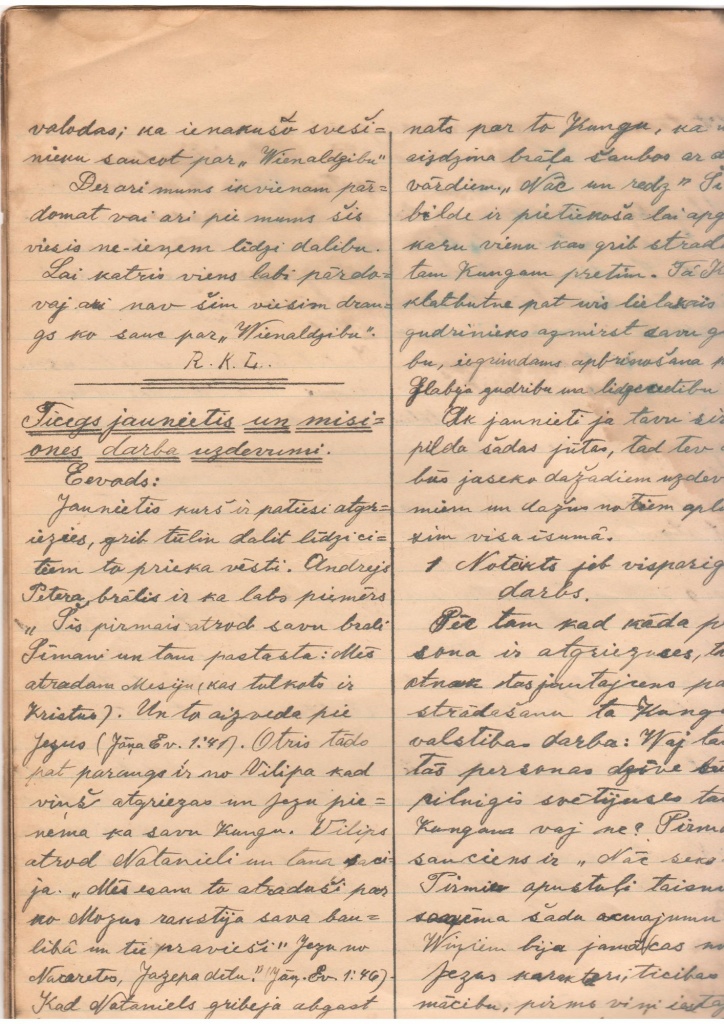 valodas; ka ienakušo sveši=
nieku saucot par „Wienaldzibu"
Der ari mums ikvienam pār=
domat vai ari pie mums šis
viesis ne-ieņem līdzi dalibu.
Lai katris viens labi pārdo=
vaj nav šim viesim drau=
gs ko sauc par „Wienaldzibu".
R. K. L.
Ticīgs jaunietis un misi=
ones darba uzdevumi.
Eevads:
Jaunietis kurš ir patiesi atgr=
iezies, grib tulin dalit līdzi ci=
tiem to prieka vēsti. Andrejs
Petera brālis ir ka labs piemērs
„Šis pirmais atrod savu brali
Sīmani un tam pastasta: Mēs
atradam Mesiju (kas tulkots ir
Kristus). Un to aizveda pie
Jezus (Jāņa Ev. 1:41). Otris tādo
pat paraugs ir no Vilipa kad
viņš atgriezas un Jezu pie=
nema ka savu Kungu. Vilips
atrod Natanieli un tam saci=
ja. „Mēs esam to atraduši par
ko Mozus rakstija sava bau=
libā un tie pravieši" Jezu no
Nacaretes, Jazepa dēlu." (Jāņ. Ev. 1:46)-
Kad Nataniels gribeja abgast
nats par to Kungu, ka
aizdzina brāļa šaubos ar
vārdiem. „Nāc un redz"
bilde ir pietiekoša lai
karu vienu kas grib
tam Kungam pretim. Tā
klatbutne pat wis lielakais
gudrinieks aizmirst savu
bu, iegrimdams apbrinošana
Glabja gudribu un
Ak jaunieti ja tavu
pilda šādas jūtas, tad tev
būs jaseko dažadiem
miem un dažus no tiem
sim visa īsumā.
1 Noteikts jeb
darbs.
Pēc tam kad kāda
sona ir atgriezuses,
otnak nas jautajiens
strādašanu ta
valstibas darba: Waj
tās personas dzive
pilnigis svētijuses
Kungam vaj ne?
sauciens ir „Nāc
Pirmie apustuļi
soņēma šādu
Wiņiem bija jamācas
Jezus karakteri, ticibas
mācibu, pirms viņi